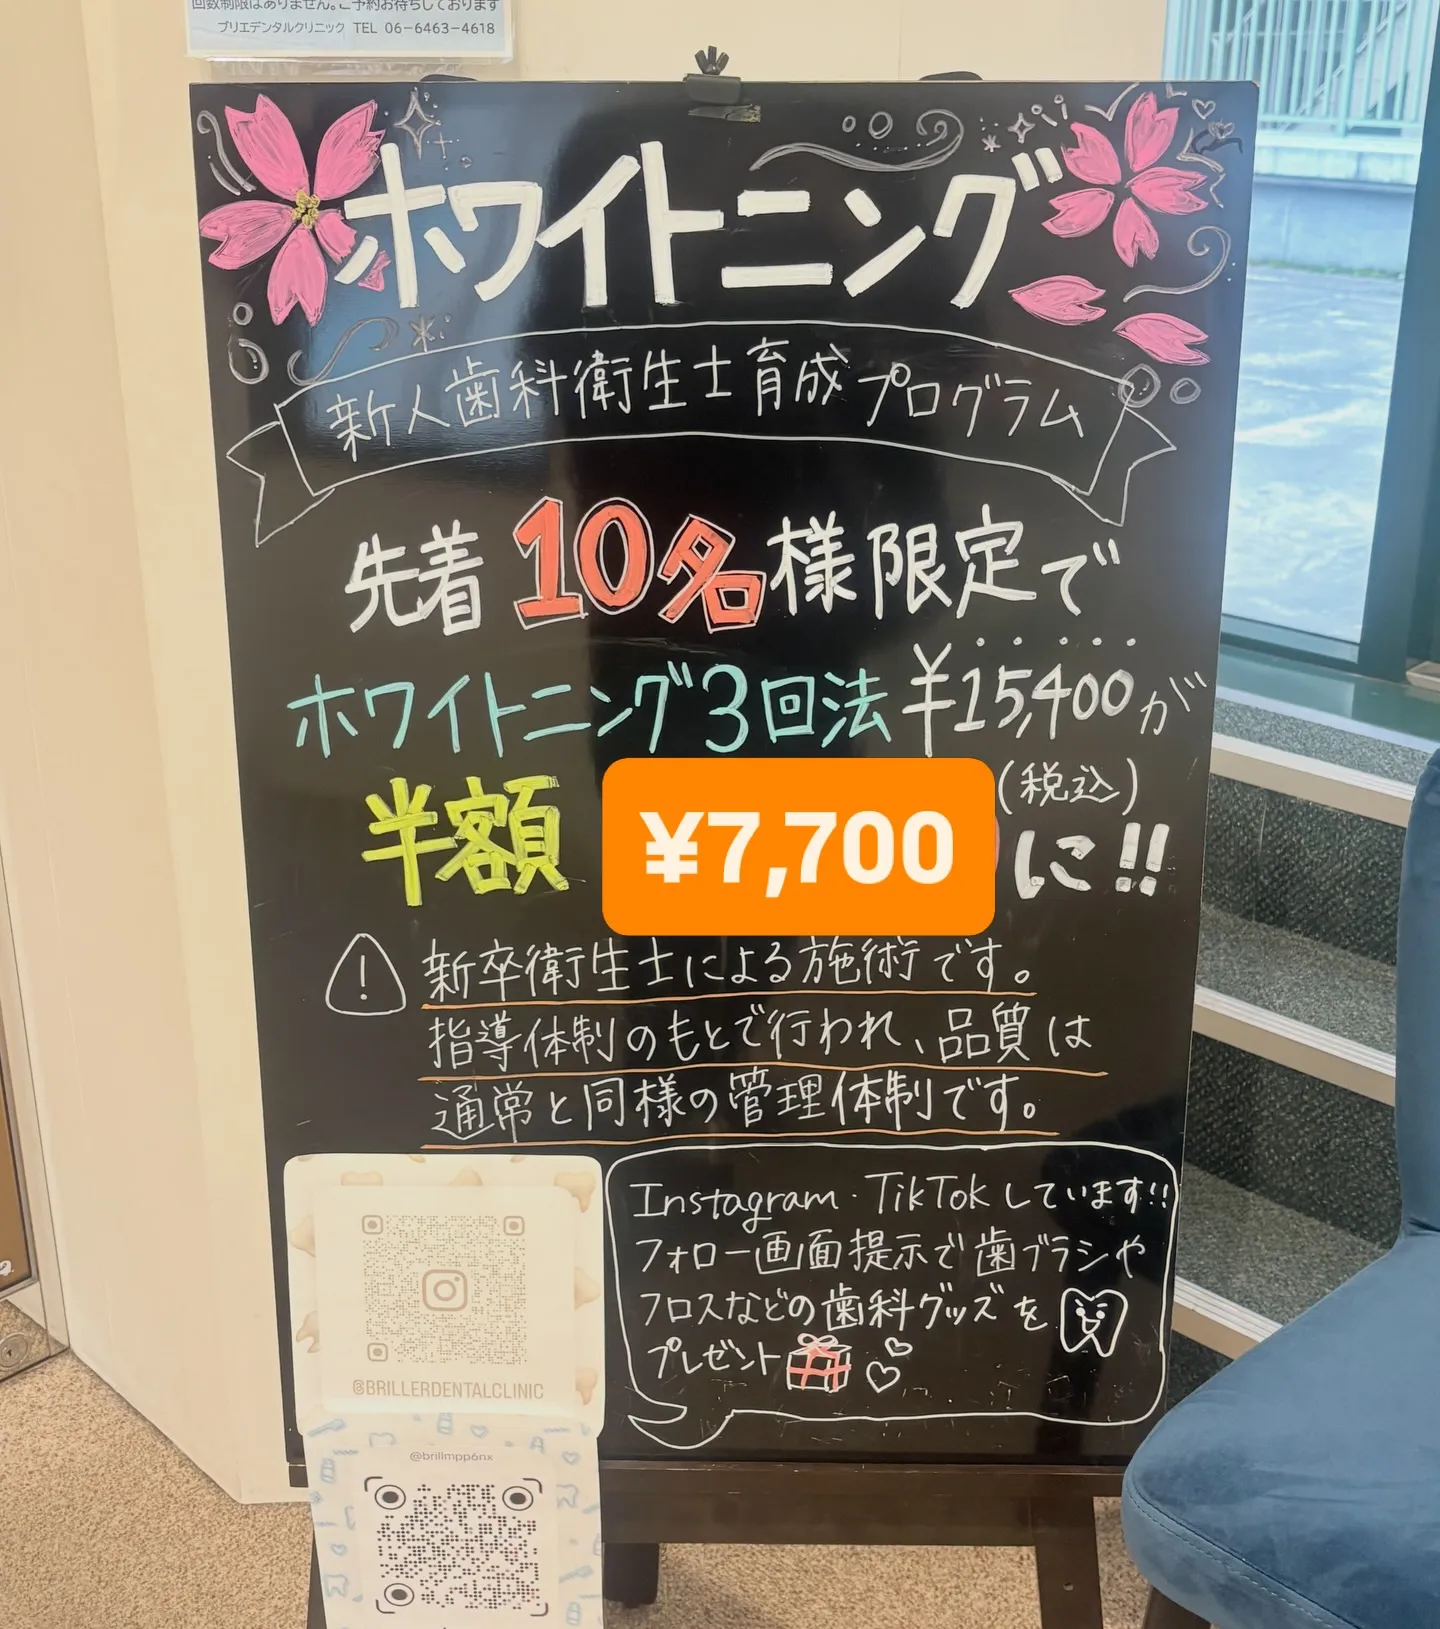 回数制限はありません。ご予約お待ちしております
ブリエデンタルクリニック TEL 06-6463-4618
ホワイトニング
新人歯科衛生士育成プログラム
先着10名様限定で
ホワイトニング3回法¥15,400が
(税込)
半額 ¥7,700 に!!
新卒衛生士による施術です。
指導体制のもとで行われ、品質は
通常と同様の管理体制です。
Instagram・TikTokしています!!
フォロー画面提示で歯ブラシや
フロスなどの歯科グッズを
プレゼント
@BRILLERDENTALCLINIC
@brillmpp6nx